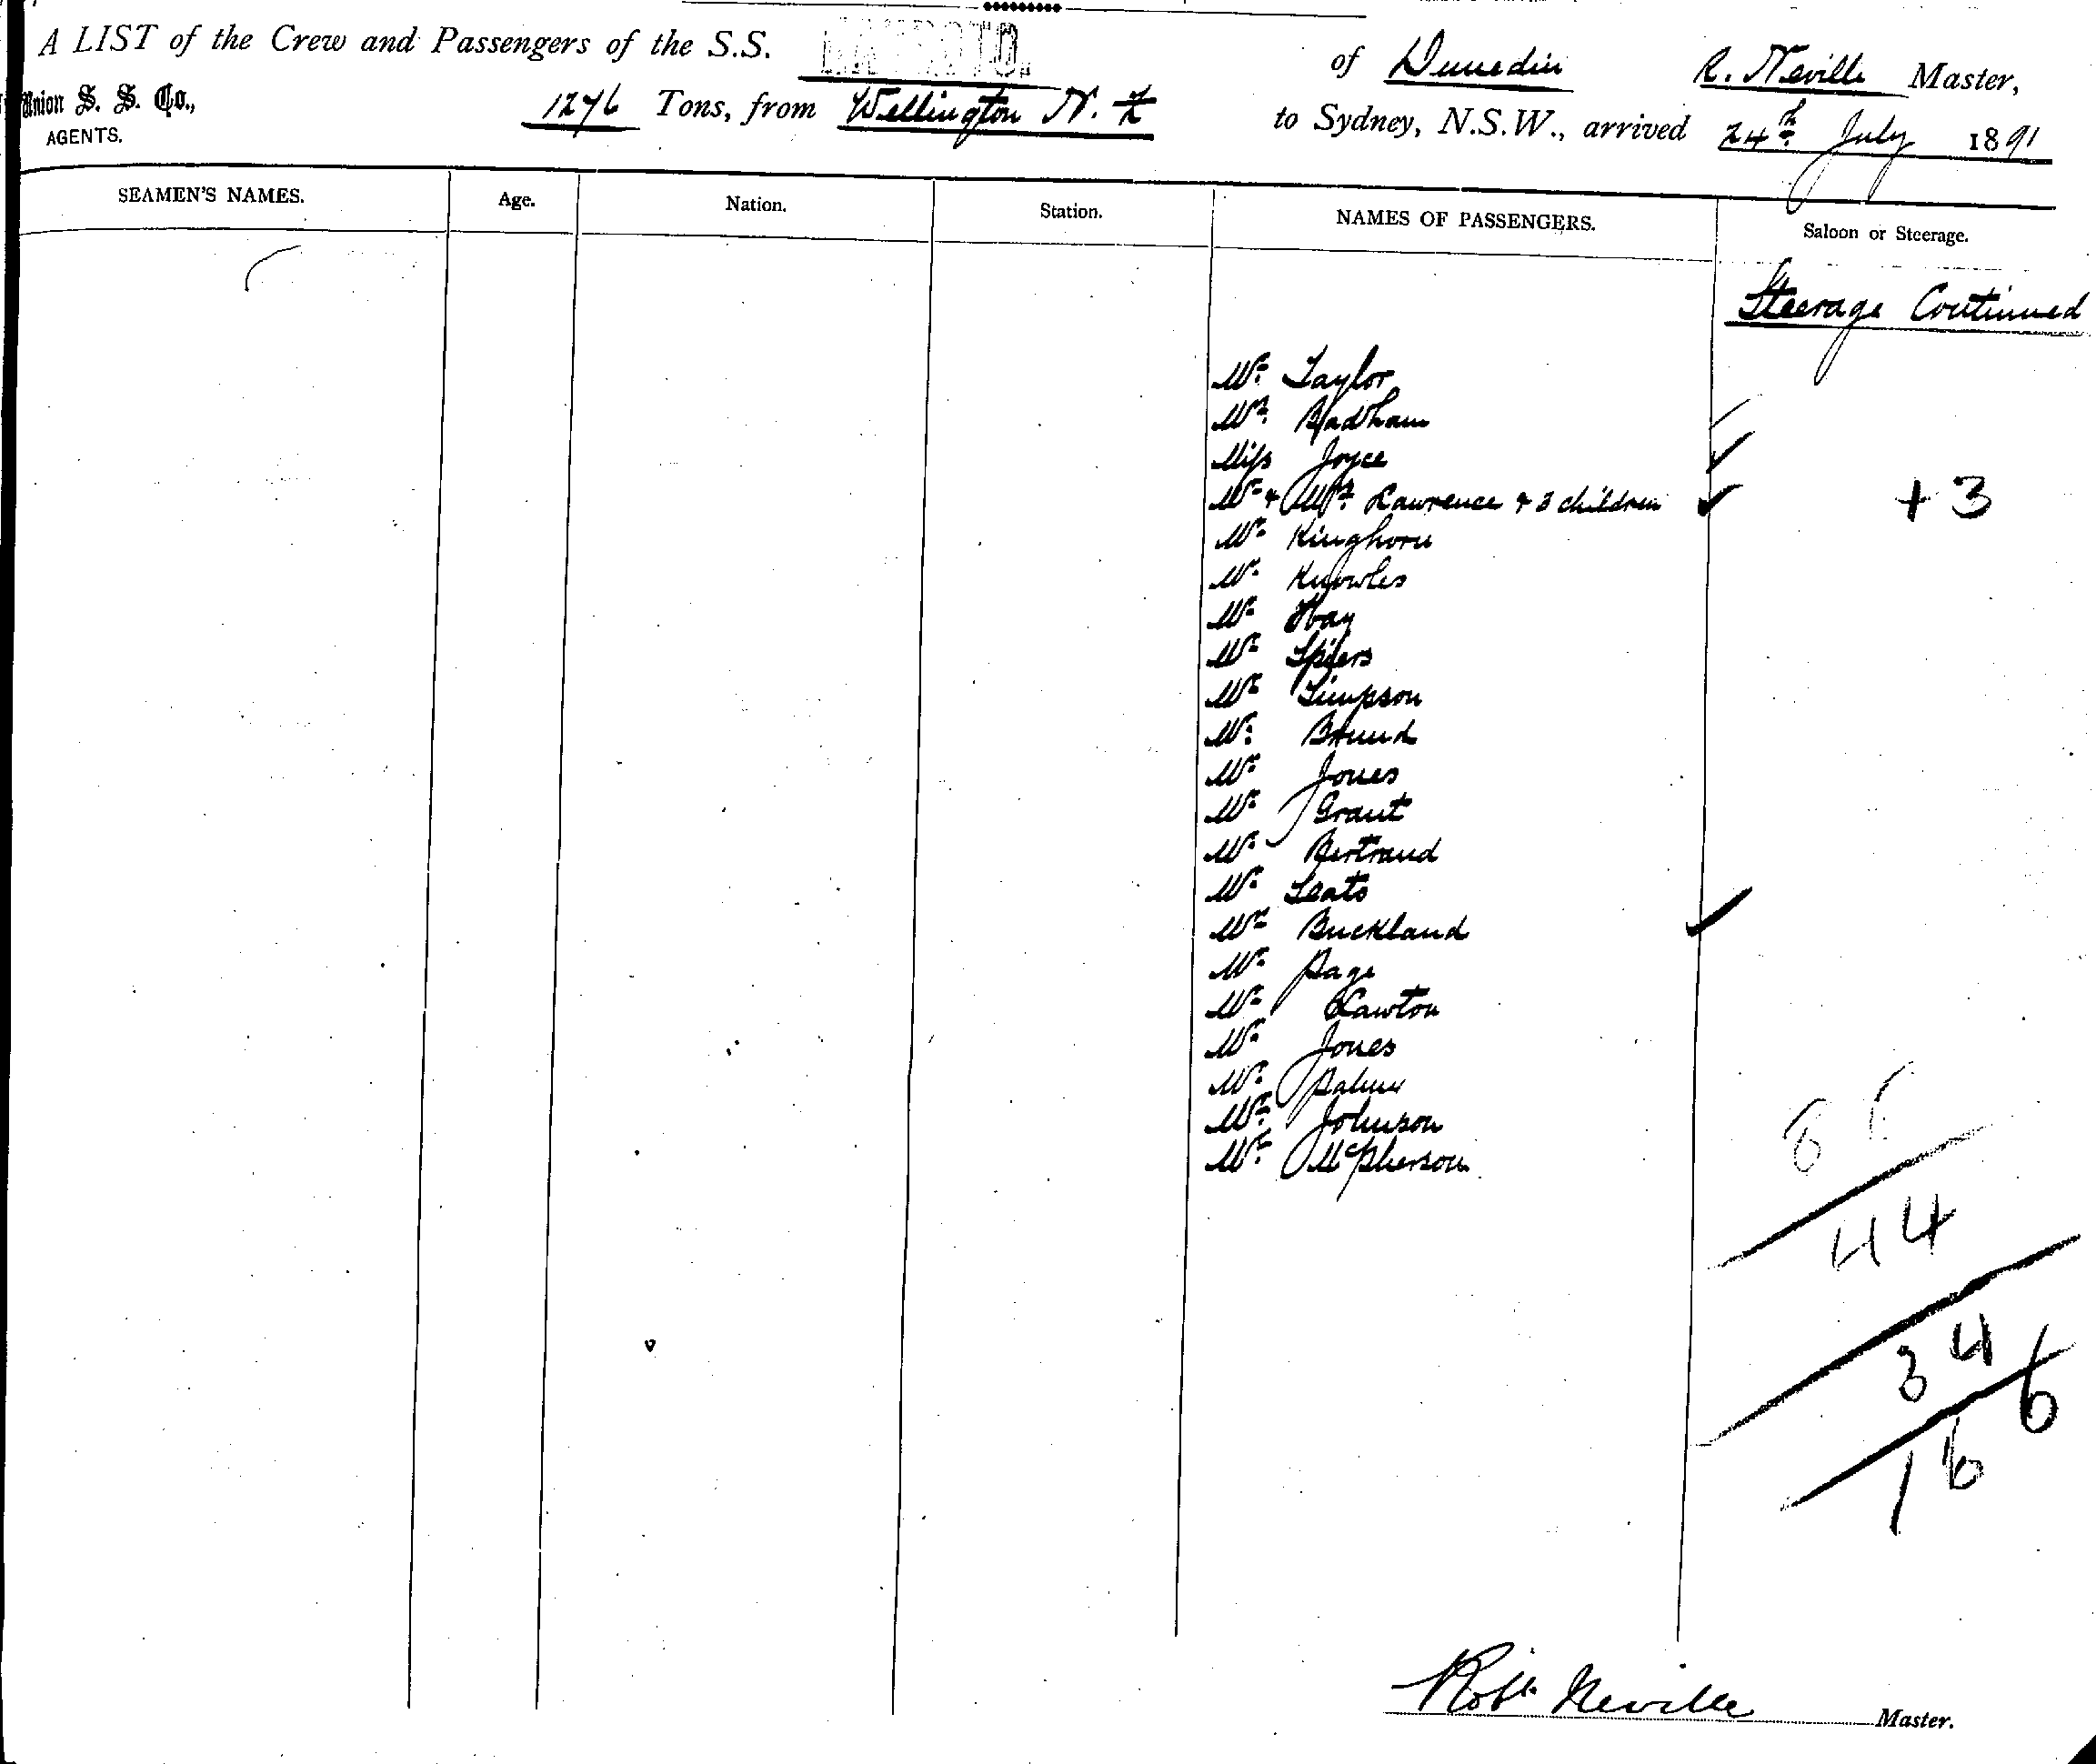 A LIST of the Crew and Passengers of the S.S. of Dunedin R. Neville Master,
Union S. S. Co., AGENTS.
1276 Tons, from Wellington N. Z to Sydney, N.S.W., arrived 24th July 1891
SEAMEN'S NAMES. Age. Nation. Station. NAMES OF PASSENGERS. Saloon or Steerage.
Steerage Continued
Mr Taylor
Mrs Badham
Miss Joyce
Mr & Mrs Lawrence & 3 children + 3
Mr Kinghorn
Mr Knowles
Mr Hay
Mr Spiers
Mr Simpson
Mr Brund
Mr Jones
Mr Grant
Mr Bertrand
Mr Seats
Mrs Buckland
Mr Page
Mr Lawton
Mr Jones
Mr Palmer
Mr Johnson
Mr McPherson
8
44
34
6
16
Robt Neville Master.